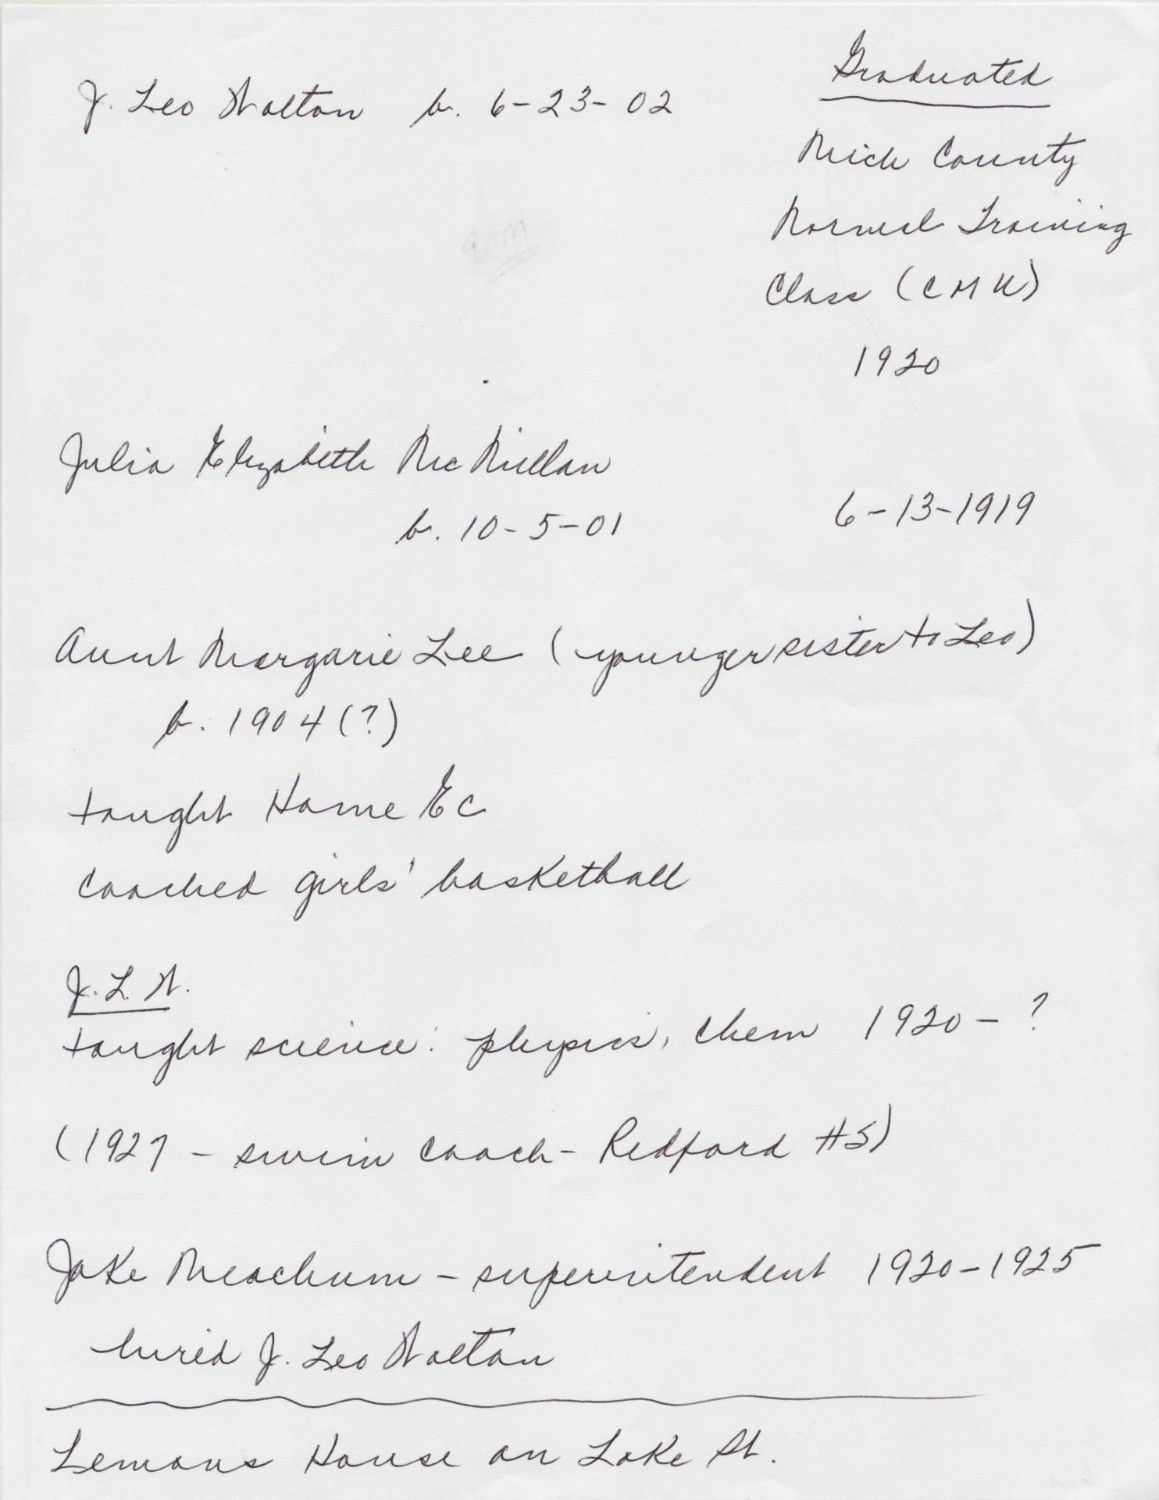 Graduated
J. Leo Walton b. 6-23-02
Mich County
Normal Training
Class (CMU)
1920
Julia Elizabeth McMillan
b. 10-5-01 6-13-1919
Aunt Margarie Lee (younger sister to Leo)
b. 1904 (?)
taught Home Ec
Coached girls' basketball
J. L. W.
taught science: physics, chem 1920 - ?
(1927 - swim coach - Redford HS)
Jake Meachum - superintendent 1920-1925
hired J. Leo Walton
Lemons House on Lake St.